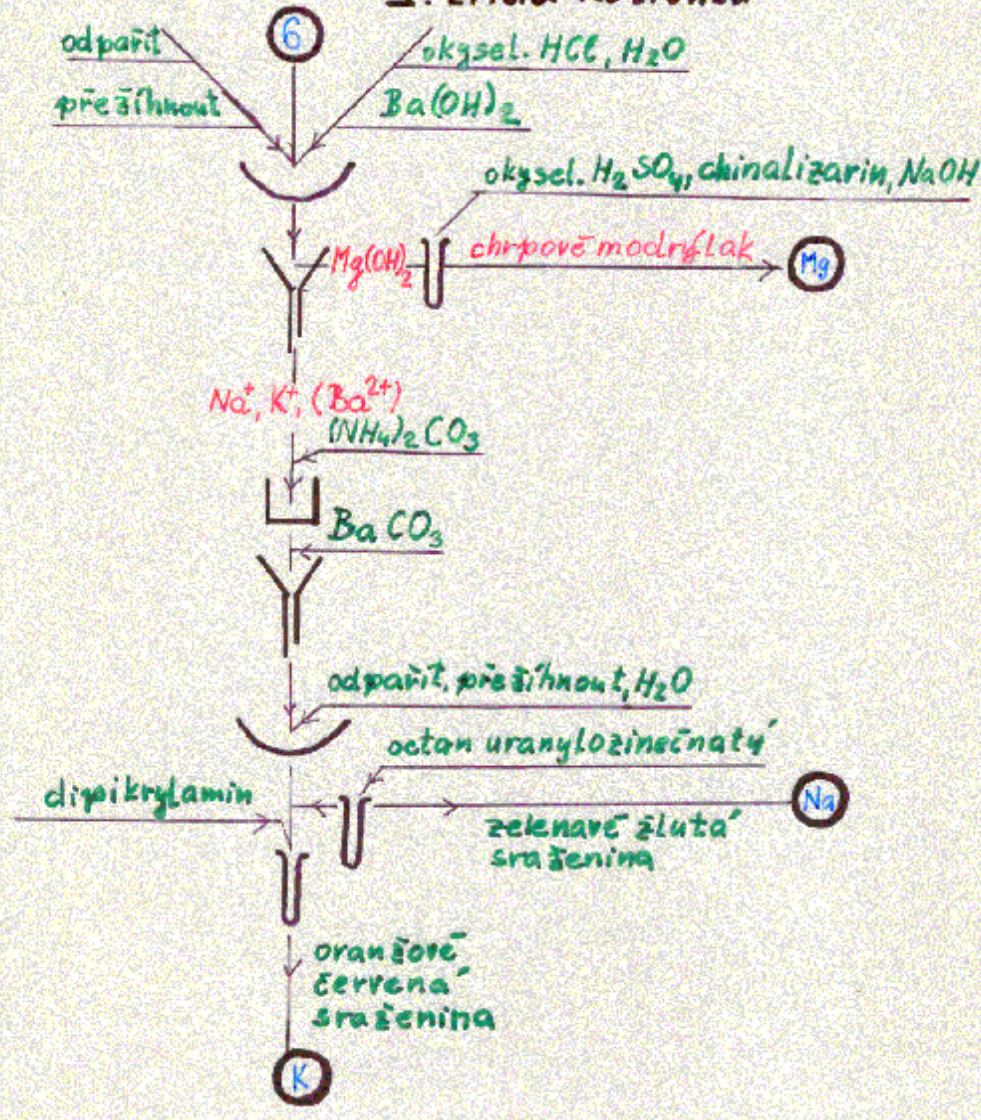 6
odpařit
okysel. HCl, H₂O
přežíhnout
Ba(OH)₂
okysel. H₂SO₄, chinalizarin, NaOH
Mg(OH)₂
chrpově modrý lak
Mg
Na⁺, K⁺, (Ba²⁺)
(NH₄)₂CO₃
BaCO₃
odpařit, přežíhnout, H₂O
octan uranylozinečnatý
dipikrylamin
Na
zelenavě žlutá
sraženina
oranžově
červená
sraženina
K